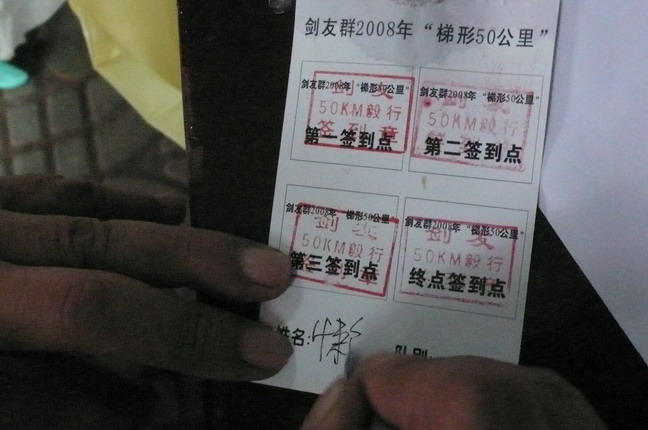 剑友群2008年“梯形50公里”
剑友群2008年“梯形50公里”
剑友
50KM毅行
签到章
第一签到点
剑友群2008年“梯形50公里”
剑友
50KM毅行
第二签到点
剑友群2008年“梯形50公里”
剑友
50KM毅行
第三签到点
剑友群2008年“梯形50公里”
剑友
50KM毅行
终点签到点
姓名:
队别: